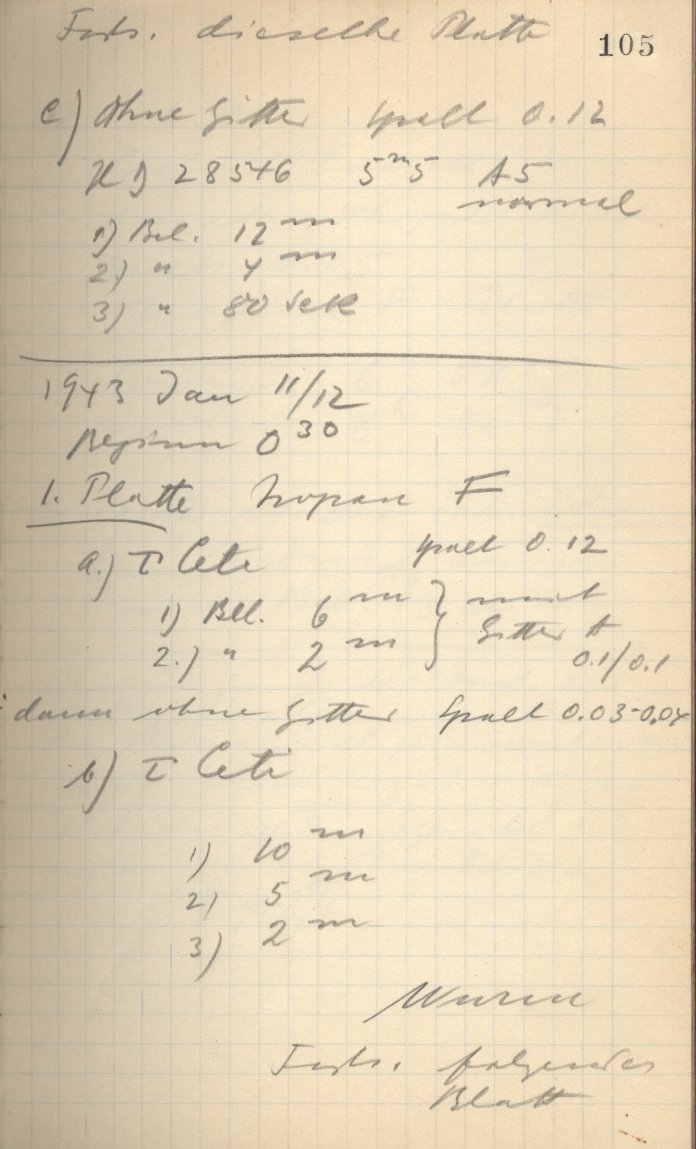 Forts. dieselbe Platte 105
c) Ohne Gitter Spalt 0.12
HD 28546 5ᵐ5 A5
normal
1) Bel. 12 ᵐ
2) " 4 ᵐ
3) " 80 Sek
1943 Jan 11/12
Beginn 0³⁰
1. Platte Isopan F
a.) τ Ceti Spalt 0.12
1) Bel. 6 ᵐ } mit
2.) " 2 ᵐ Gitter A
0.1/0.1
dann ohne Gitter Spalt 0.03-0.04
b) τ Ceti
1) 10 ᵐ
2) 5 ᵐ
3) 2 ᵐ
Wurm
Forts. folgendes
Blatt